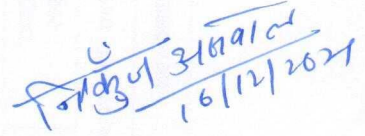 निकुँज अग्रवाल
16/12/2021